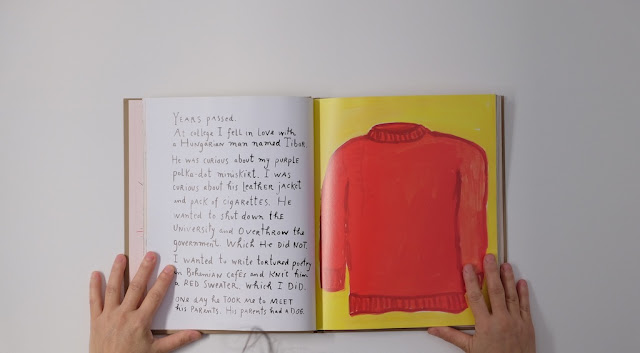 YEARS passed.
At college I fell in love with
a HUNGARIAN man named TIBOR
HE was CURIOUS about my PURPLE
polka-dot miniskirt. I was
CURIOUS about his LEATHER JACKET
and pack of CIGARETTES. HE
wanted to shut down the
UNIVERSITY and OVERTHROW the
government. WHICH HE DID NOT.
I wanted to write tortured poetry
in BOHEMIAN cafés and KNIT him
a RED SWEATER. WHICH I DID.
ONE day he TOOK me to MEET
his PARENTS. His PARENTS had a DOG.